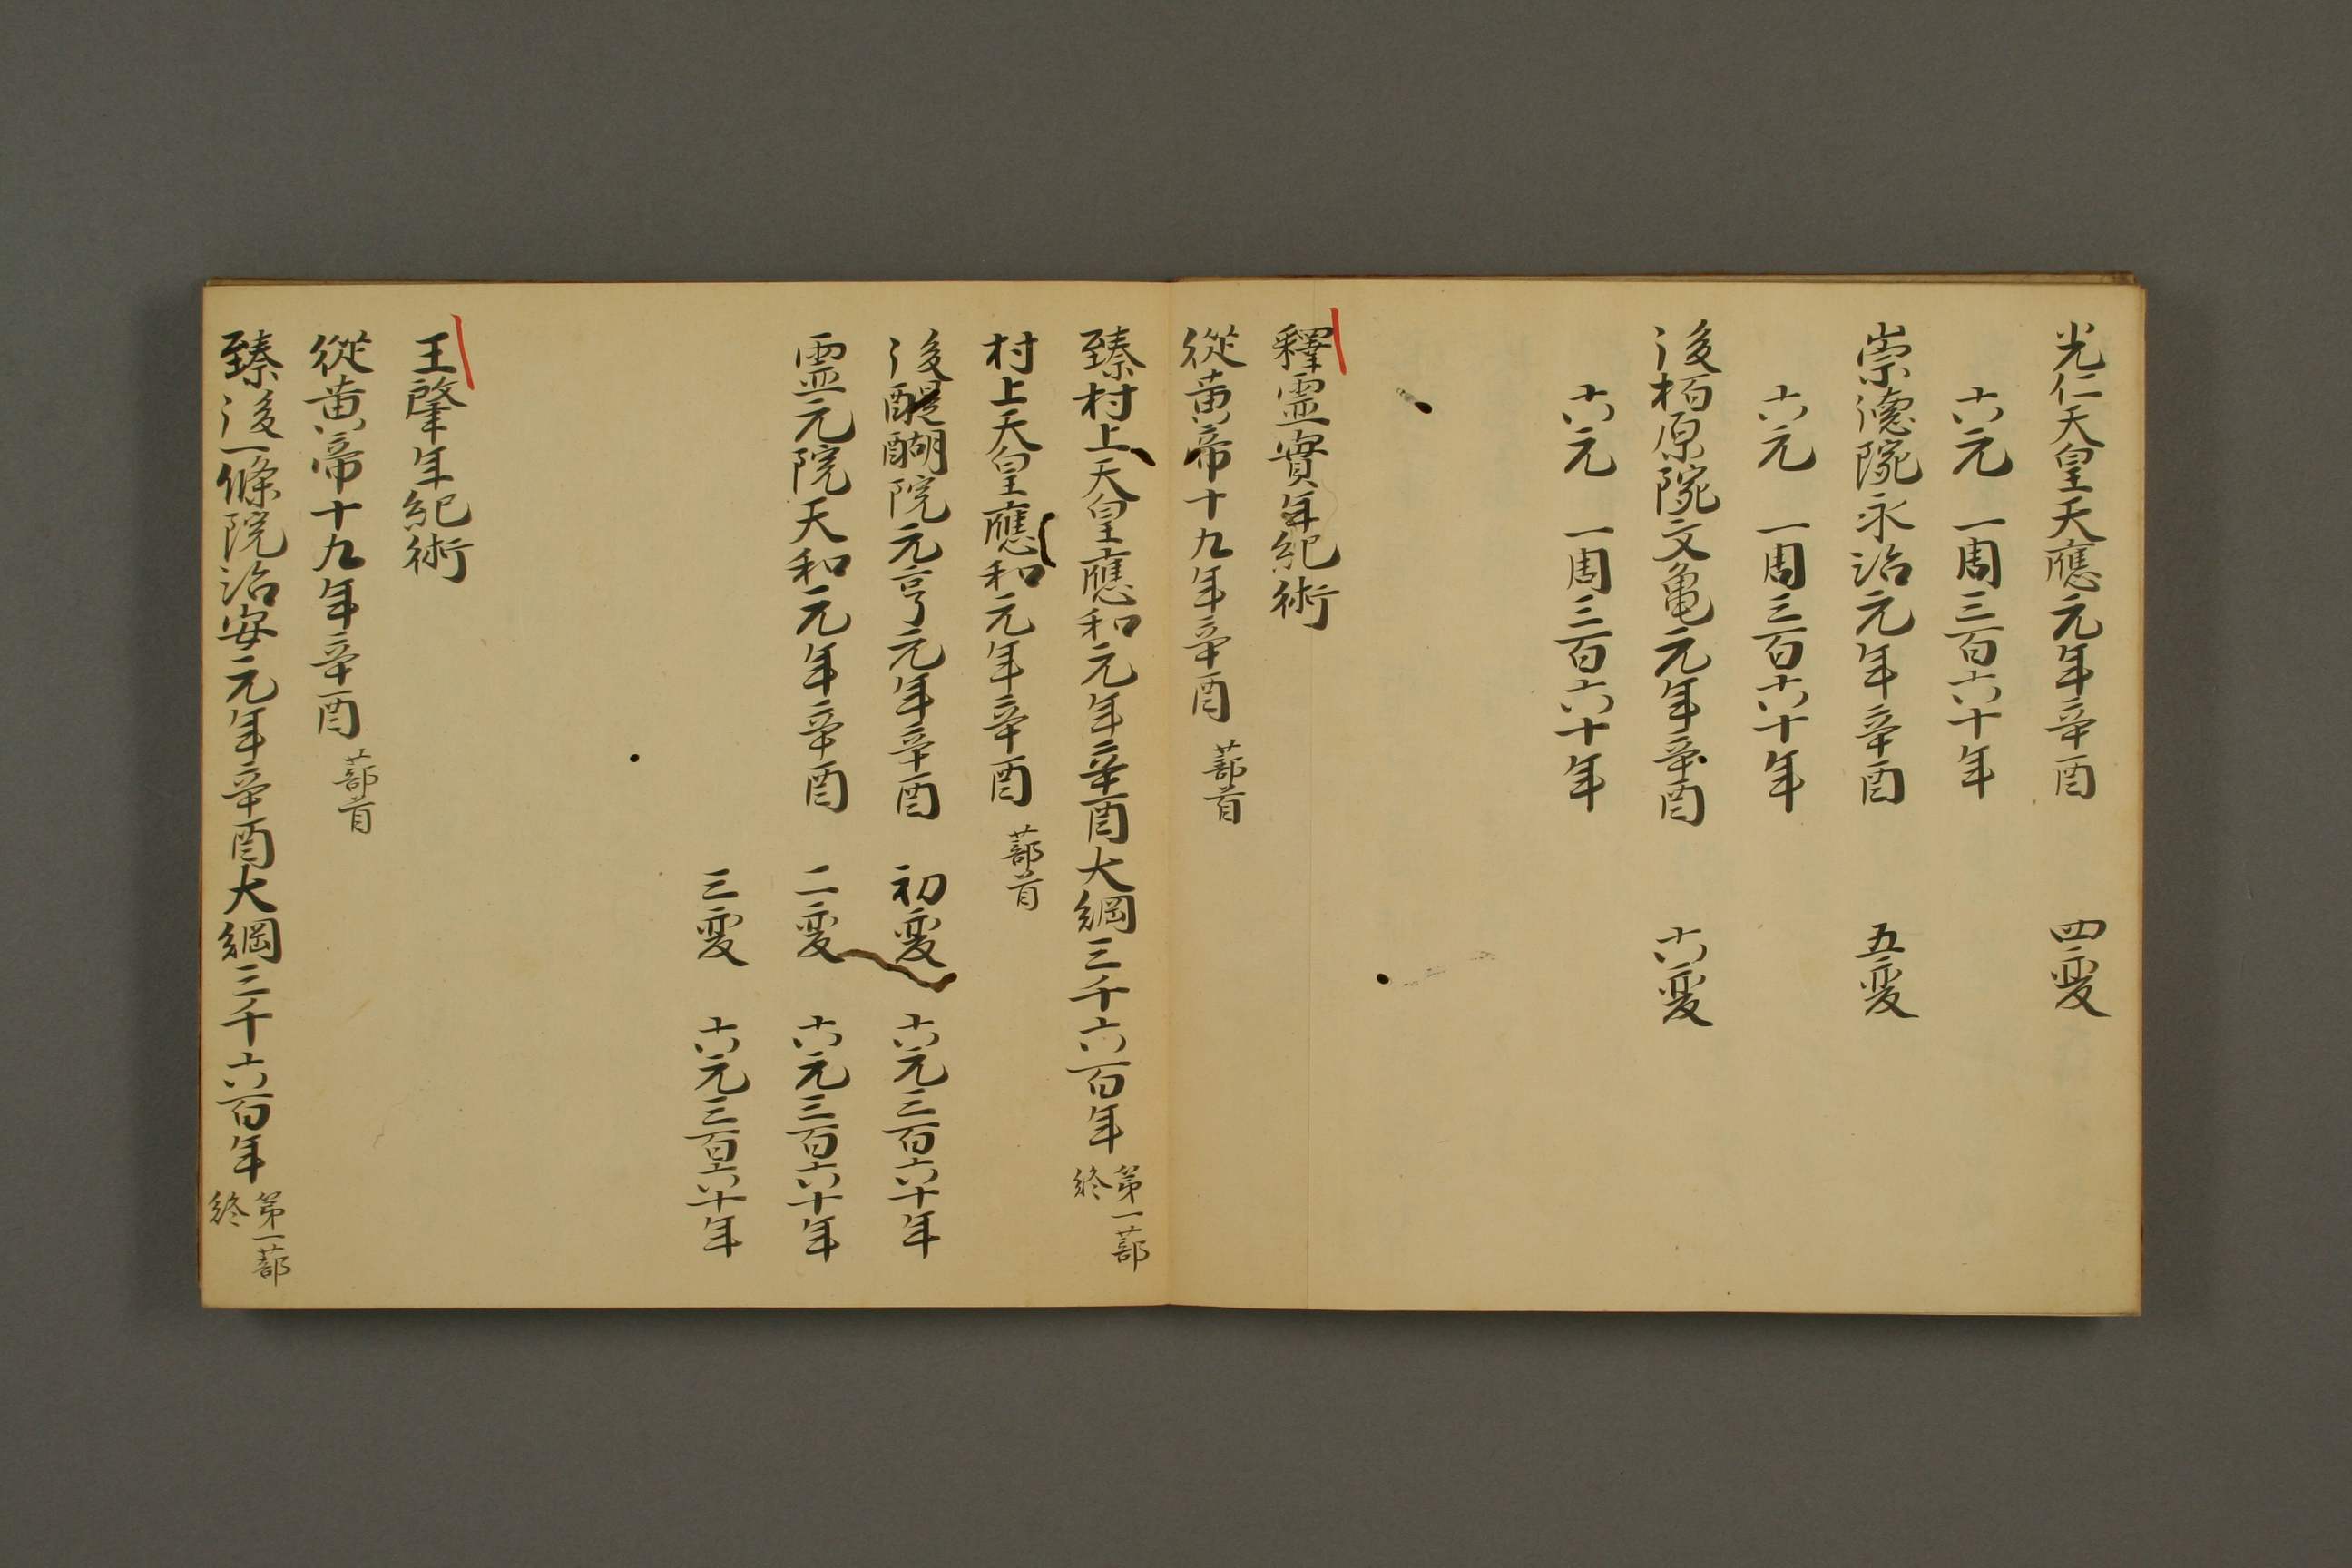 光仁天皇天應元年辛酉 四變
六元 一周三百六十年
崇德院永治元年辛酉 五變
六元 一周三百六十年
後栢原院文亀元年辛酉 六變
六元 一周三百六十年
釋霊實年紀術
從黄帝十九年辛酉 蔀首
臻村上天皇應和元年辛酉大綱三千六百年 第一蔀終
村上天皇應和元年辛酉 蔀首
後醍醐院元亨元年辛酉 初變 六元三百六十年
霊元院天和元年辛酉 二變 六元三百六十年
三變 六元三百六十年
王肇年紀術
從黄帝十九年辛酉 蔀首
臻後一條院治安元年辛酉大綱三千六百年 第一蔀終